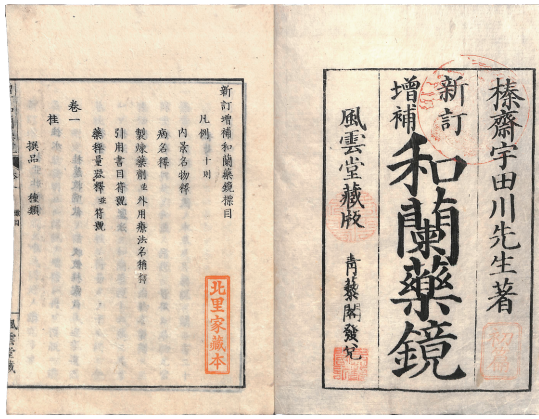 榛齋宇田川先生著
新訂
增補
和蘭藥鏡
風雲堂藏版
青藜閣發兌
新訂增補和蘭藥鏡標目
凡例 十則
內景名物釋
病名釋
製煉藥劑並外用療法名稱釋
引用書目符號
藥秤量茲釋並符號
卷一
桂
撰品 種類
北里家藏本
風雲堂藏